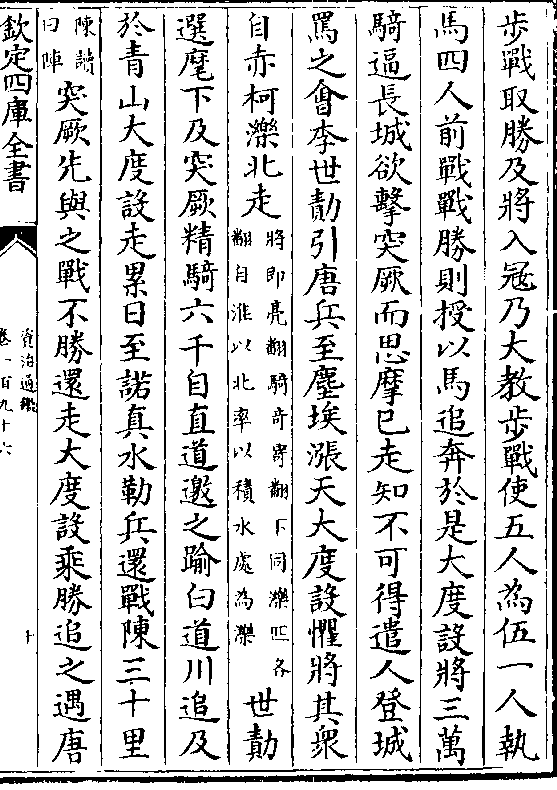 步戰取勝及將入冦乃大教步戰使五人為伍一人執
馬四人前戰戰勝則授以馬追奔於是大度設將三萬
騎逼長城欲擊突厥而思摩已走知不可得遣人登城
罵之會李世勣引唐兵至塵埃漲天大度設懼將其衆
自赤柯濼北走將即亮翻騎奇寄翻下同濼匹各翻自淮以北率以積水處為濼世勣
選麾下及突厥精騎六千自直道邀之踰白道川追及
於青山大度設走累日至諾真水勒兵還戰陳三十里
陳讀曰陣突厥先與之戰不勝還走大度設乘勝追之遇唐
欽定四庫全書
資治通鑑
卷一百九十六
十